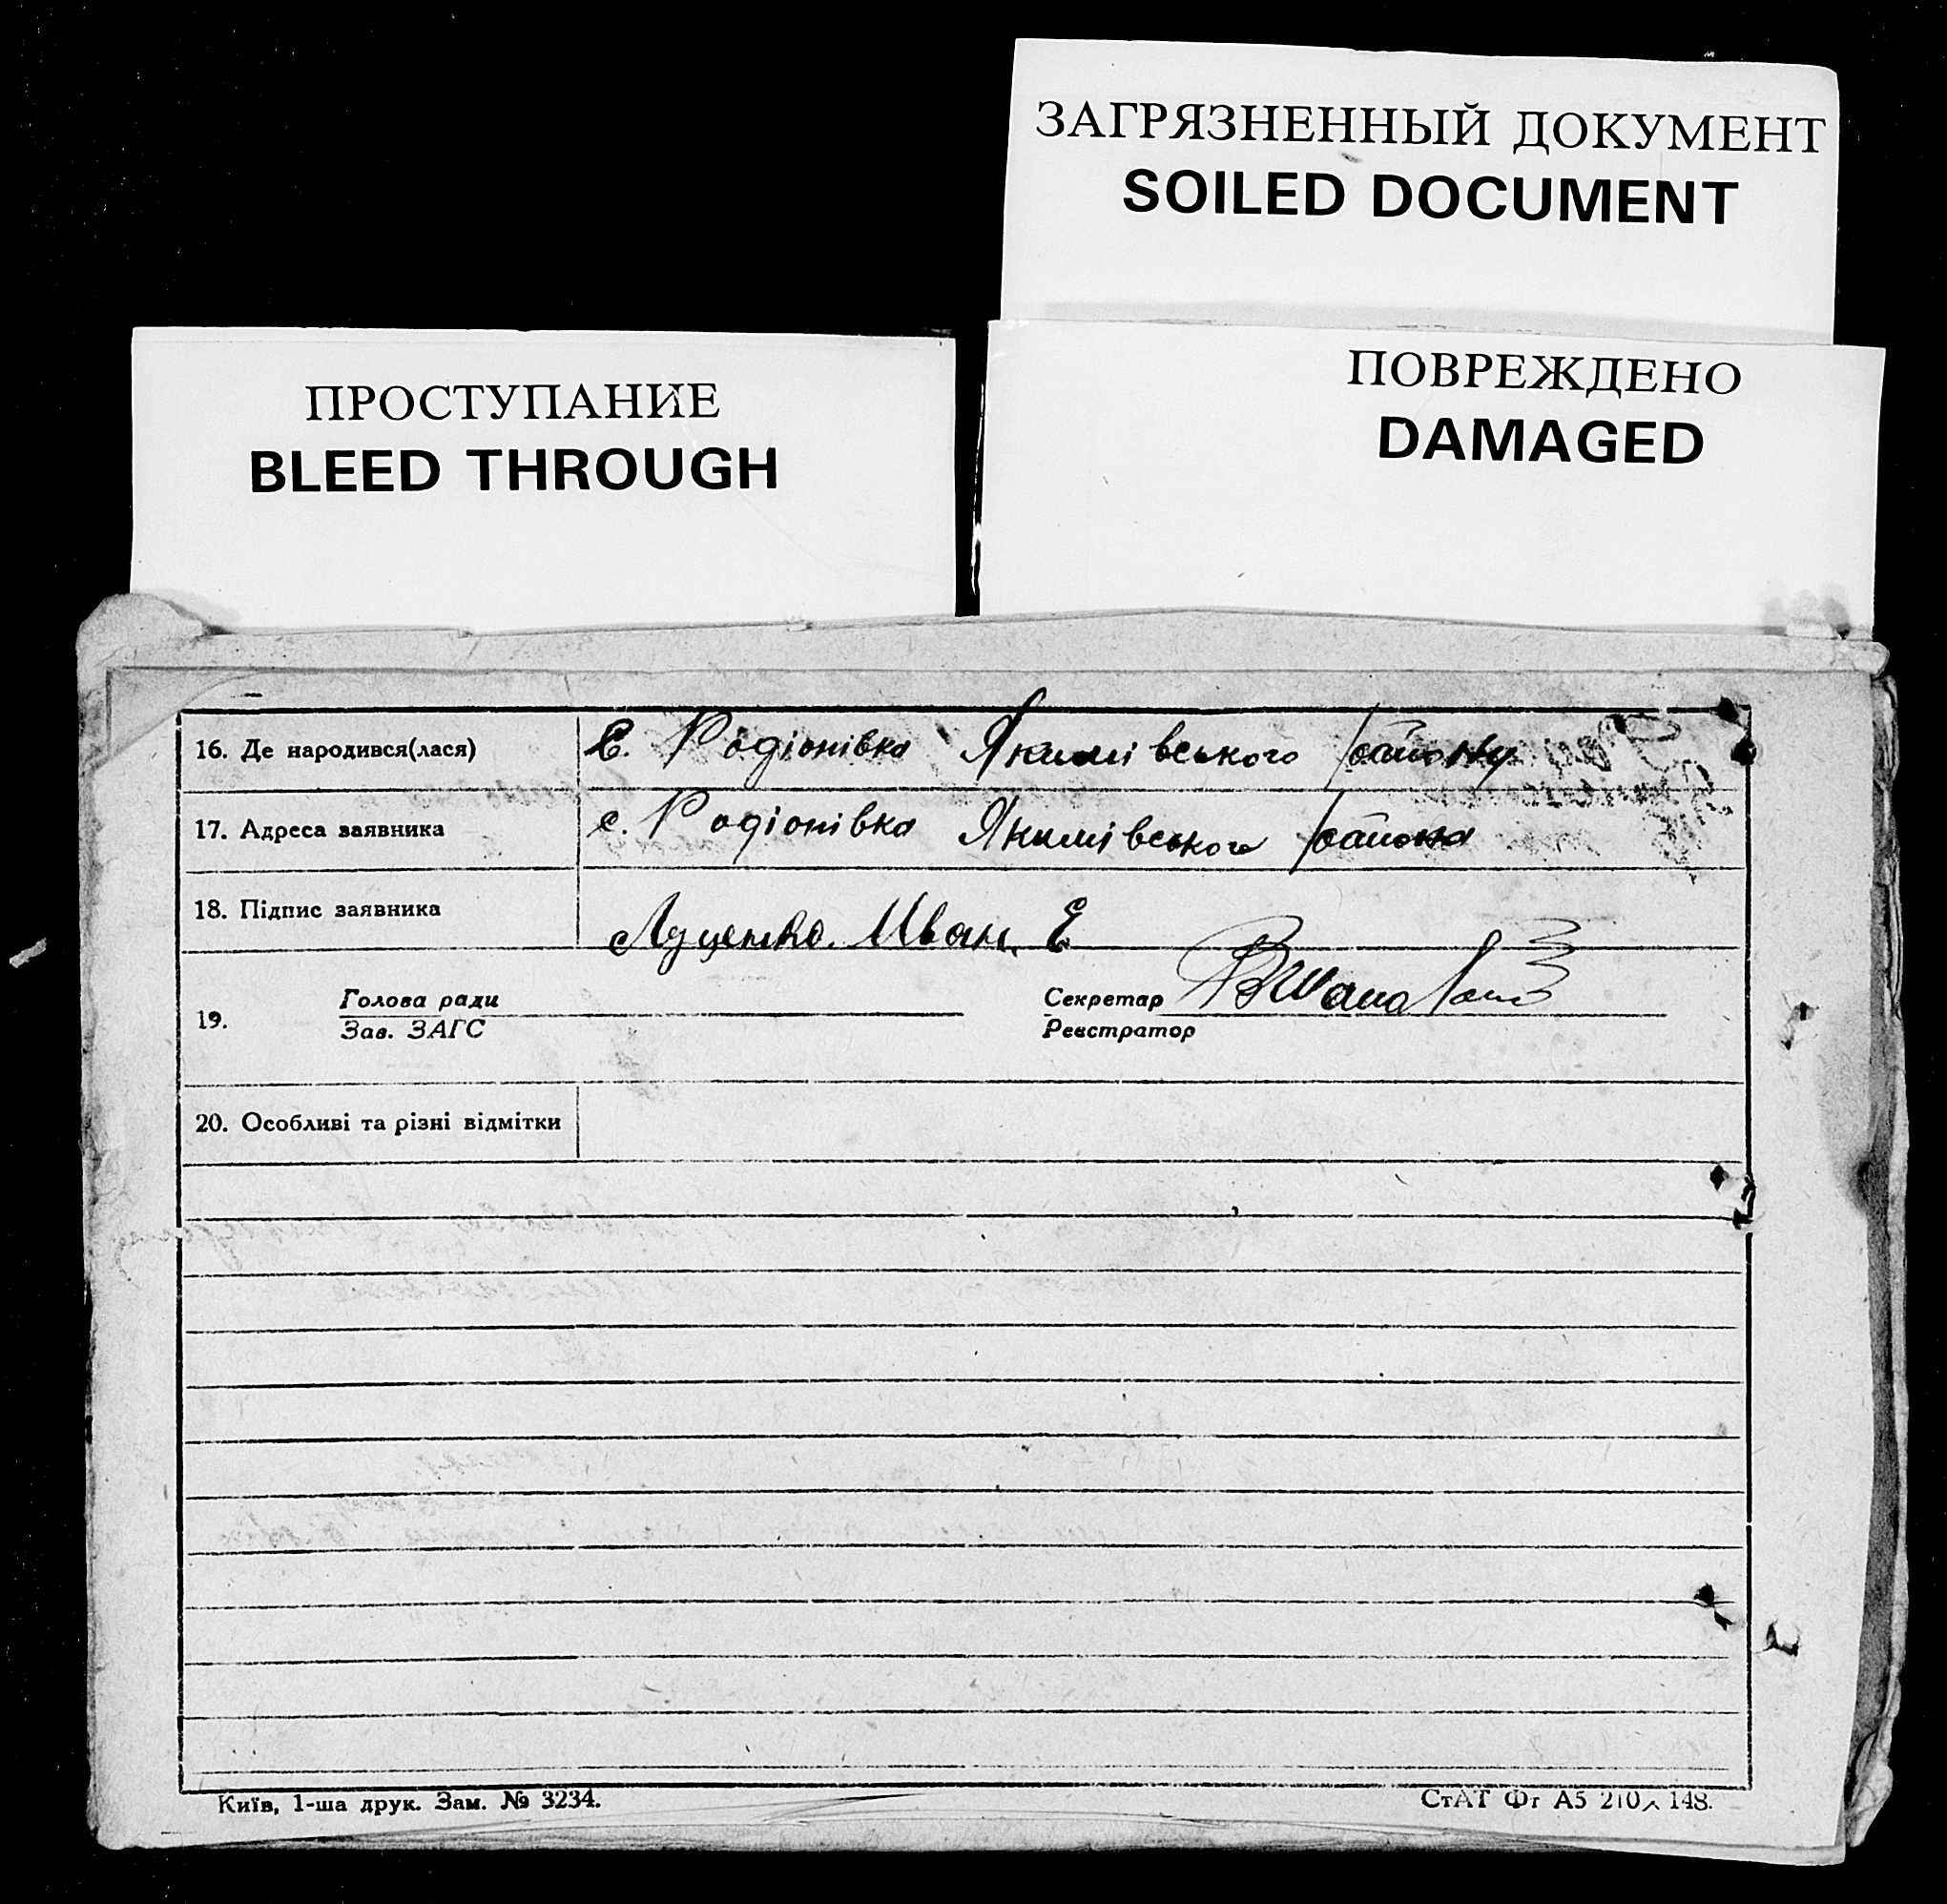 ЗАГРЯЗНЕННЫЙ ДОКУМЕНТ
SOILED DOCUMENT
ПРОСТУПАНИЕ
BLEED THROUGH
ПОВРЕЖДЕНО
DAMAGED
16. Де народився(лася) С. Родіонівка Якимівського району
17. Адреса заявника с. Родіонівка Якимівського района
18. Підпис заявника Луценко Иван Е
19. Голова ради Секретар
Зав. ЗАГС Реєстратор
20. Особливі та різні відмітки
Київ, 1-ша друк. Зам. № 3234. СтАТ Фг А5 210 148.